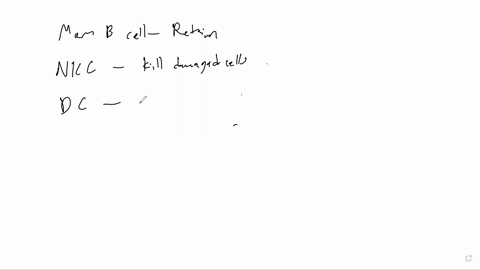 Mem B cell – Retain
NKC – kill damaged cells
DC –